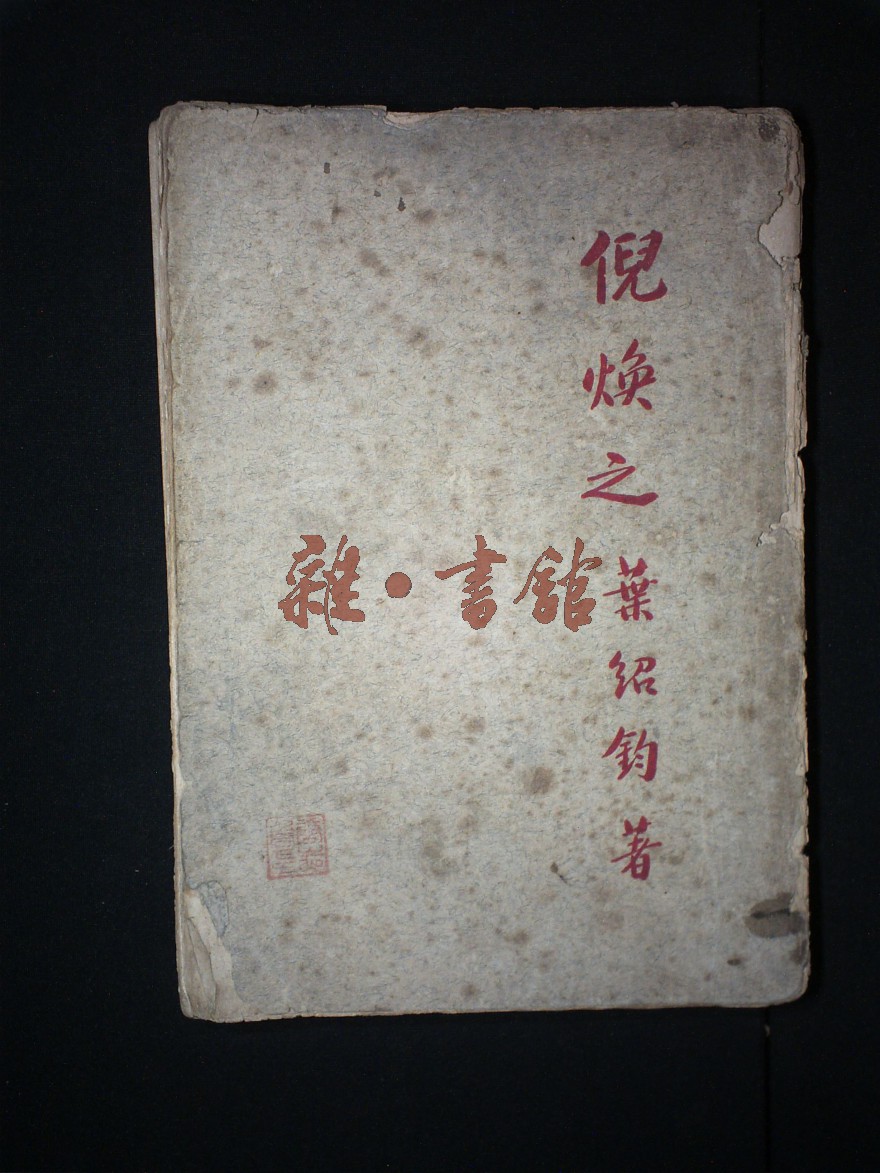 倪煥之 葉紹鈞著
雜·書館